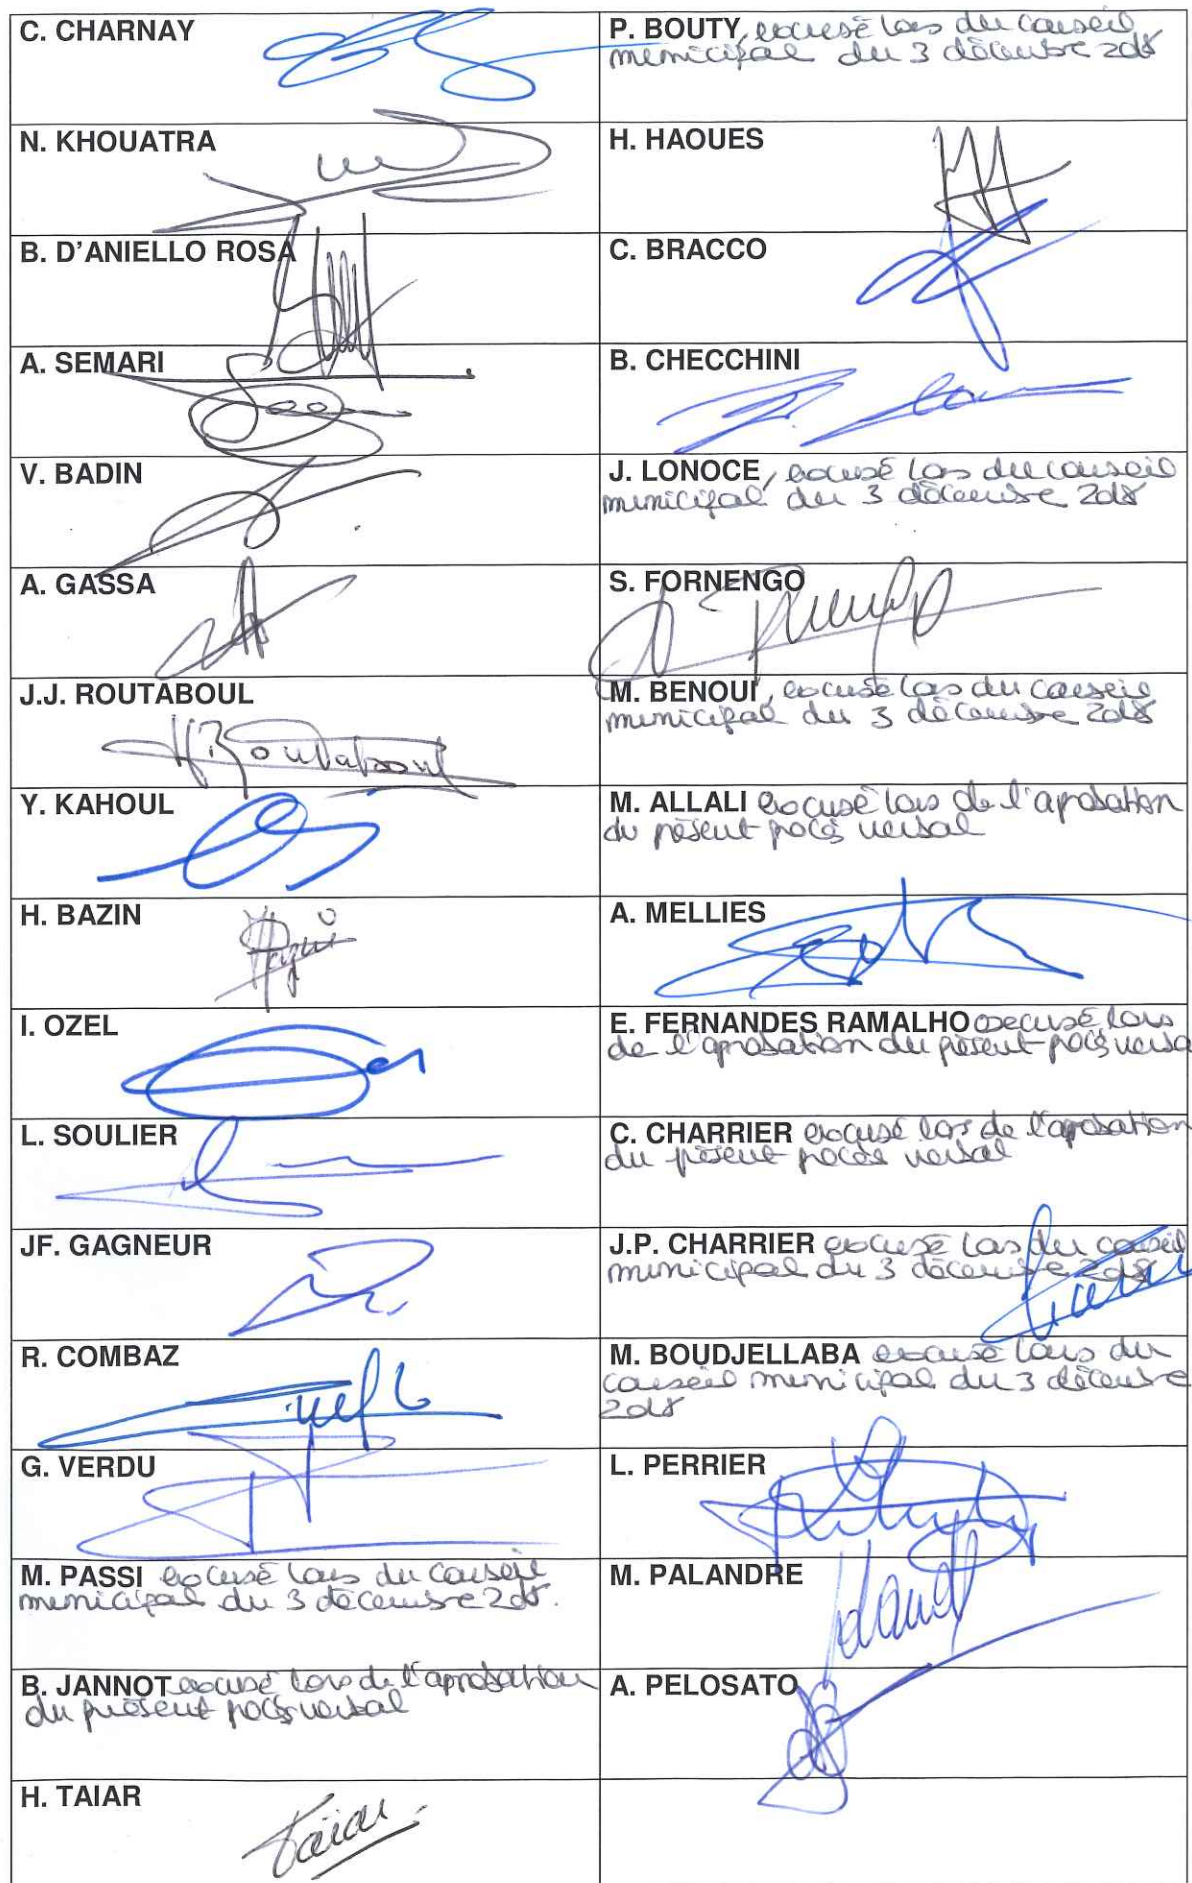 C. CHARNAY
P. BOUTY, excusé lors du conseil
municipal du 3 décembre 2018
N. KHOUATRA
H. HAOUES
B. D'ANIELLO ROSA
C. BRACCO
A. SEMARI
B. CHECCHINI
V. BADIN
J. LONOCE, excusé lors du conseil
municipal du 3 décembre 2018
A. GASSA
S. FORNENGO
J.J. ROUTABOUL
Routaboul
M. BENOUI, excusé lors du conseil
municipal du 3 décembre 2018
Y. KAHOUL
M. ALLALI excusé lors de l'aprobation
du présent procès verbal
H. BAZIN
A. MELLIES
I. OZEL
E. FERNANDES RAMALHO excusé lors
de l'aprobation du présent procès verba
L. SOULIER
C. CHARRIER excusé lors de l'aprobation
du présent procès verbal
JF. GAGNEUR
J.P. CHARRIER excusé lors du conseil
municipal du 3 décembre 2018
R. COMBAZ
M. BOUDJELLABA excusé lors du
conseil municipal du 3 décembre
2018
G. VERDU
L. PERRIER
M. PASSI excusé lors du conseil
municipal du 3 décembre 2018.
M. PALANDRE
B. JANNOT excusé lors de l'aprobation
du présent procès verbal
A. PELOSATO
H. TAIAR
Taiar